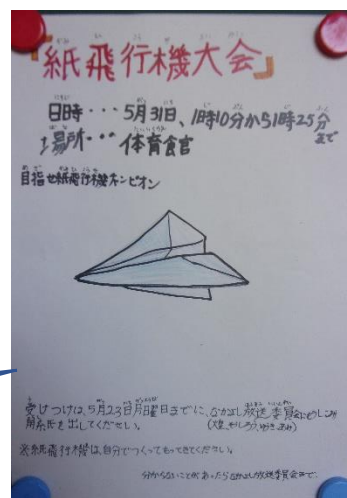 「紙飛行機大会」
日時・・・5月31日、1時10分から1時25分まで
場所・・・体育食官
目指せ紙飛行機チンピオン
受けつけは、5月23日月曜日までに、なかよし放送委員会に申しこみ
用紙を出してください。
※紙飛行機は、自分でつくってもってきてください。
分からないことがあったらなかよし放送委員会まで。